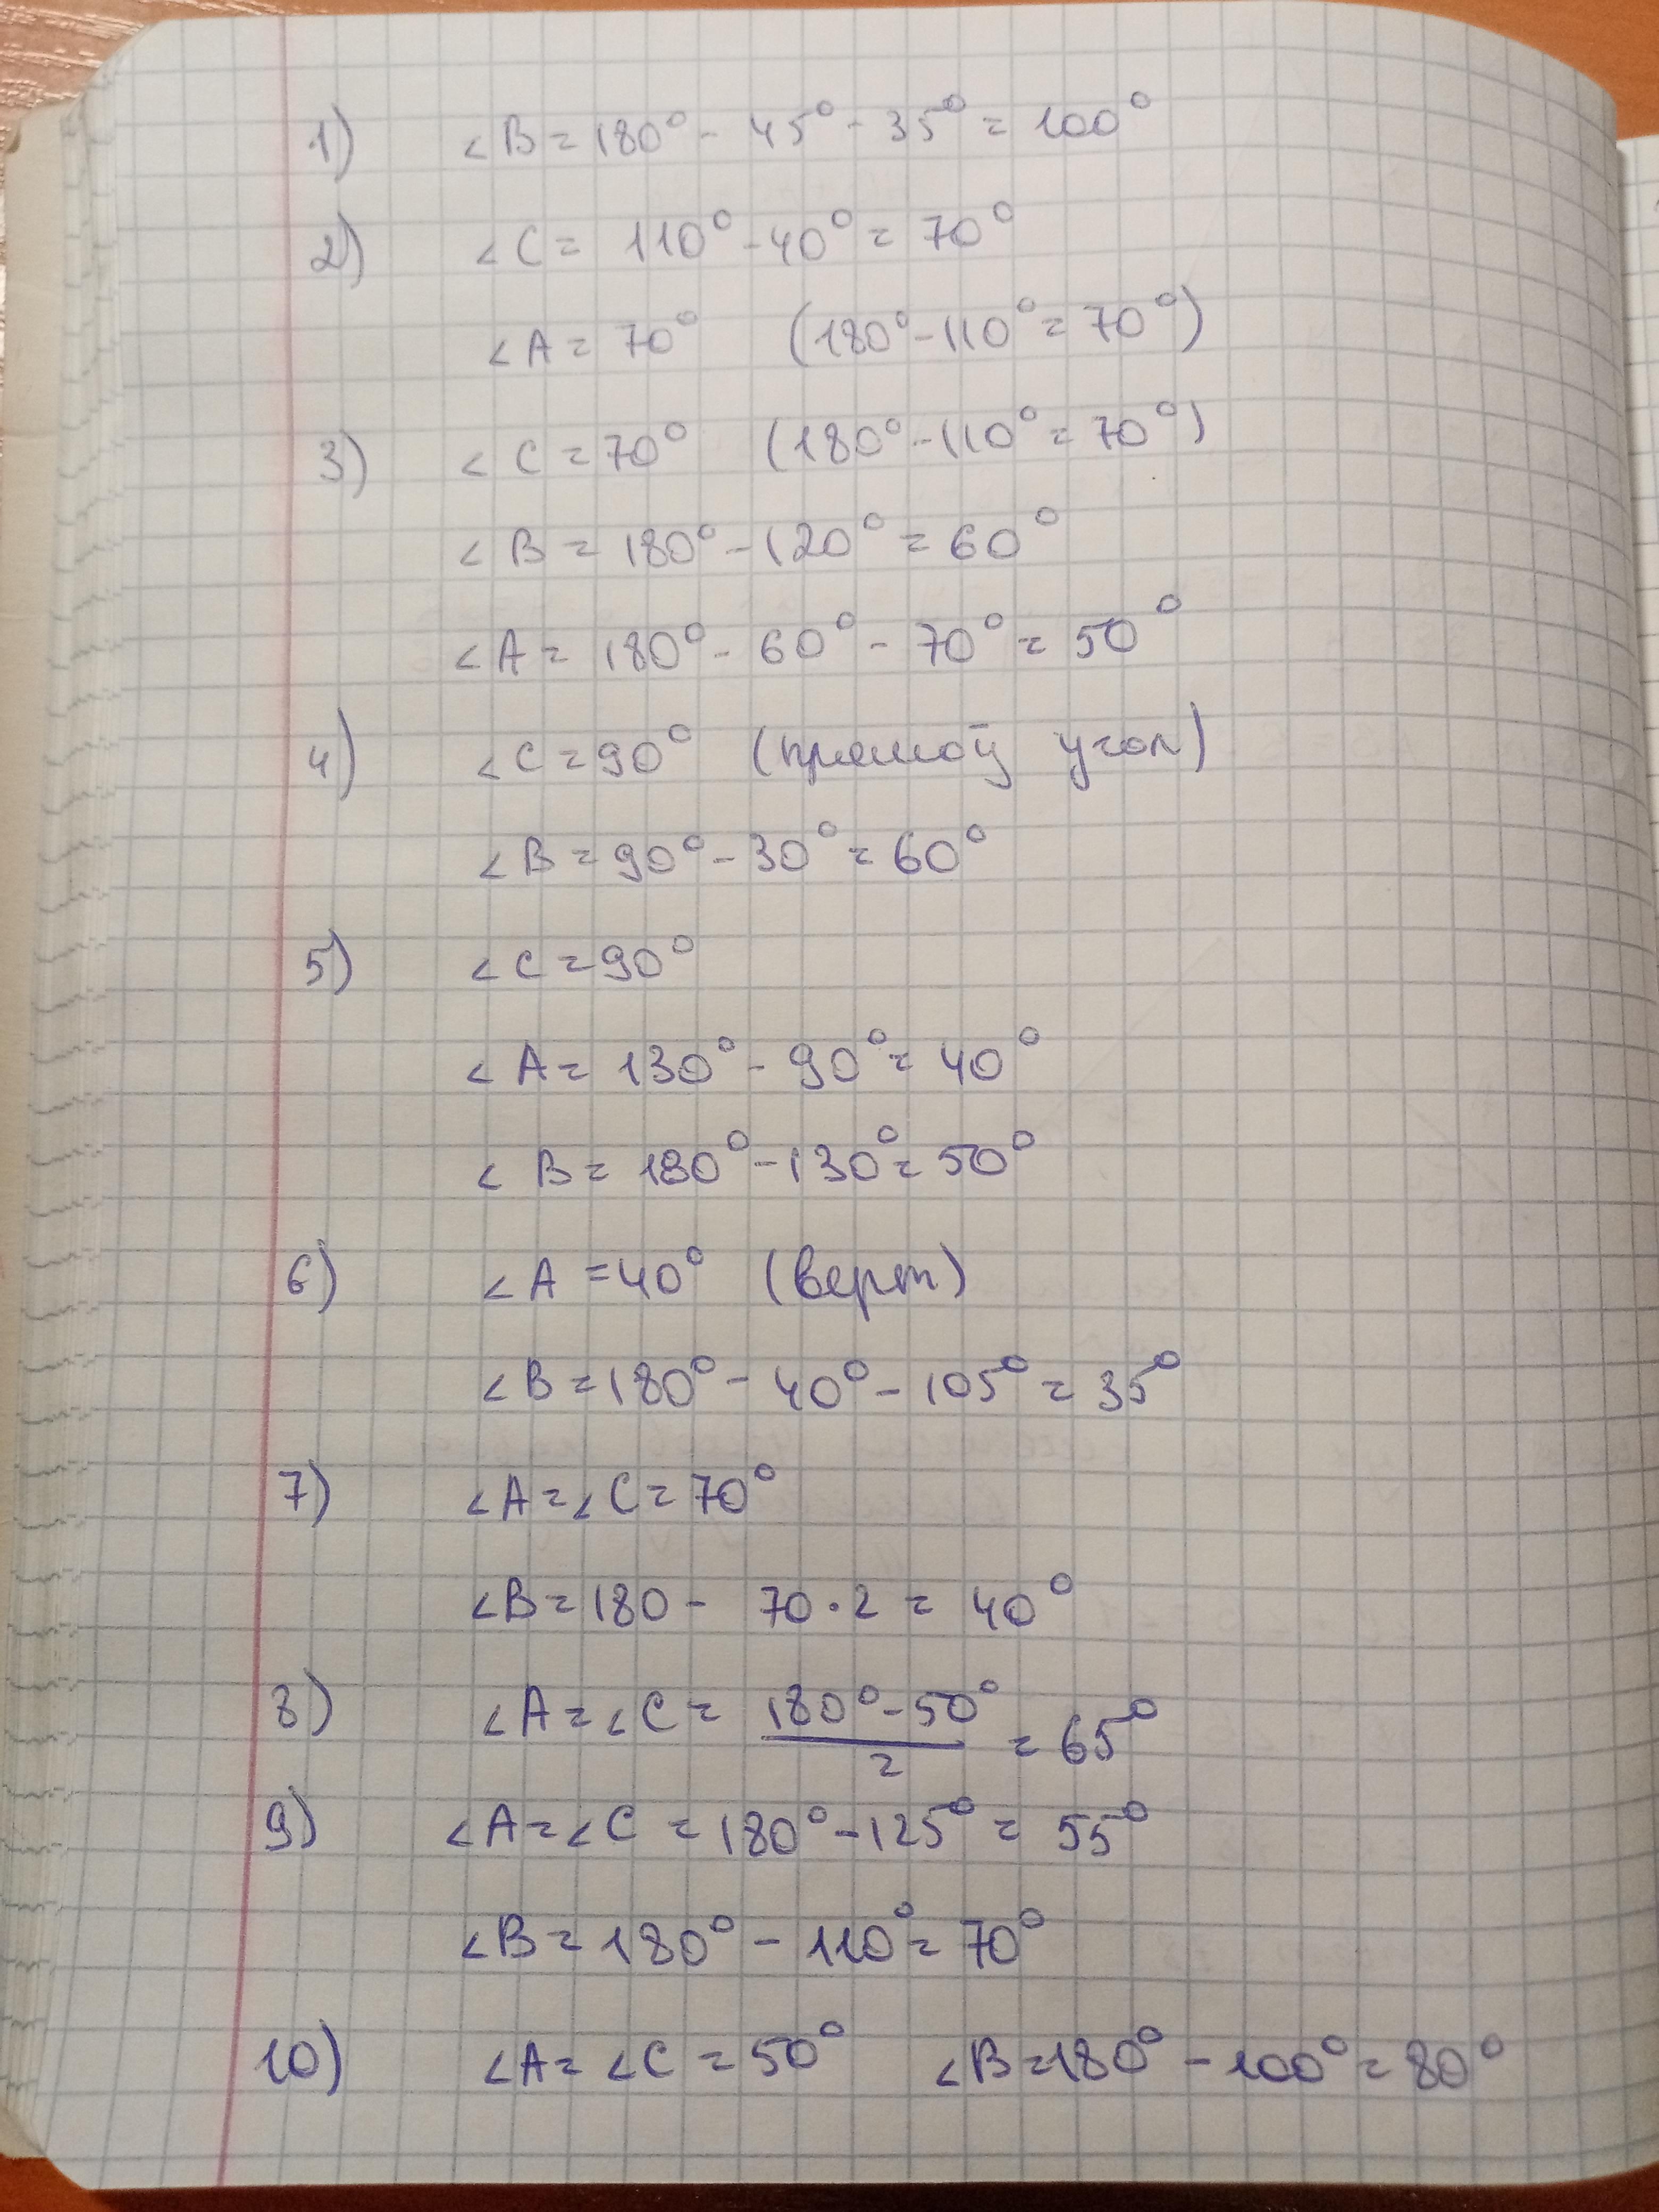 1) ∠B = 180° - 45° - 35° = 100°
2) ∠C = 110° - 40° = 70°
∠A = 70° (180° - 110° = 70°)
3) ∠C = 70° (180° - 110° = 70°)
∠B = 180° - 120° = 60°
∠A = 180° - 60° - 70° = 50°
4) ∠C = 90° (прямой угол)
∠B = 90° - 30° = 60°
5) ∠C = 90°
∠A = 130° - 90° = 40°
∠B = 180° - 130° = 50°
6) ∠A = 40° (верт)
∠B = 180° - 40° - 105° = 35°
7) ∠A = ∠C = 70°
∠B = 180 - 70 · 2 = 40°
8) ∠A = ∠C = (180° - 50°)/2 = 65°
9) ∠A = ∠C = 180° - 125° = 55°
∠B = 180° - 110° = 70°
10) ∠A = ∠C = 50° ∠B = 180° - 100° = 80°